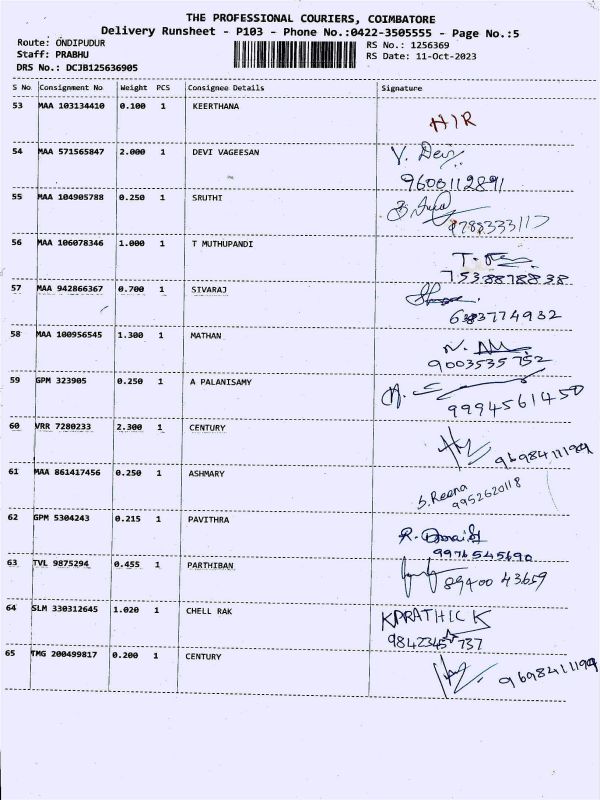 THE PROFESSIONAL COURIERS, COIMBATORE
Delivery Runsheet - P103 - Phone No.:0422-3505555 - Page No.:5
Route: ONDIPUDUR
RS No.: 1256369
Staff: PRABHU
RS Date: 11-Oct-2023
DRS No.: DCJB125636905
S No Consignment No Weight PCS Consignee Details Signature
53 MAA 103134410 0.100 1 KEERTHANA
HIR
54 MAA 571565847 2.000 1 DEVI VAGEESAN V. Devi
9600112891
55 MAA 104905788 0.250 1 SRUTHI
8788333117
56 MAA 106078346 1.000 1 T MUTHUPANDI
7538878838
57 MAA 942866367 0.700 1 SIVARAJ
6383774932
58 MAA 100956545 1.300 1 MATHAN
9003535752
59 GPM 323905 0.250 1 A PALANISAMY
9994561450
60 VRR 7280233 2.300 1 CENTURY
9698411194
61 MAA 861417456 0.250 1 ASHMARY
S. Reena
9952620118
62 GPM 5304243 0.215 1 PAVITHRA
9976545690
63 TVL 9875294 0.455 1 PARTHIBAN
89400 43659
64 SLM 330312645 1.020 1 CHELL RAK KPRATHICK
9842345737
65 TMG 200499817 0.200 1 CENTURY
9698411194